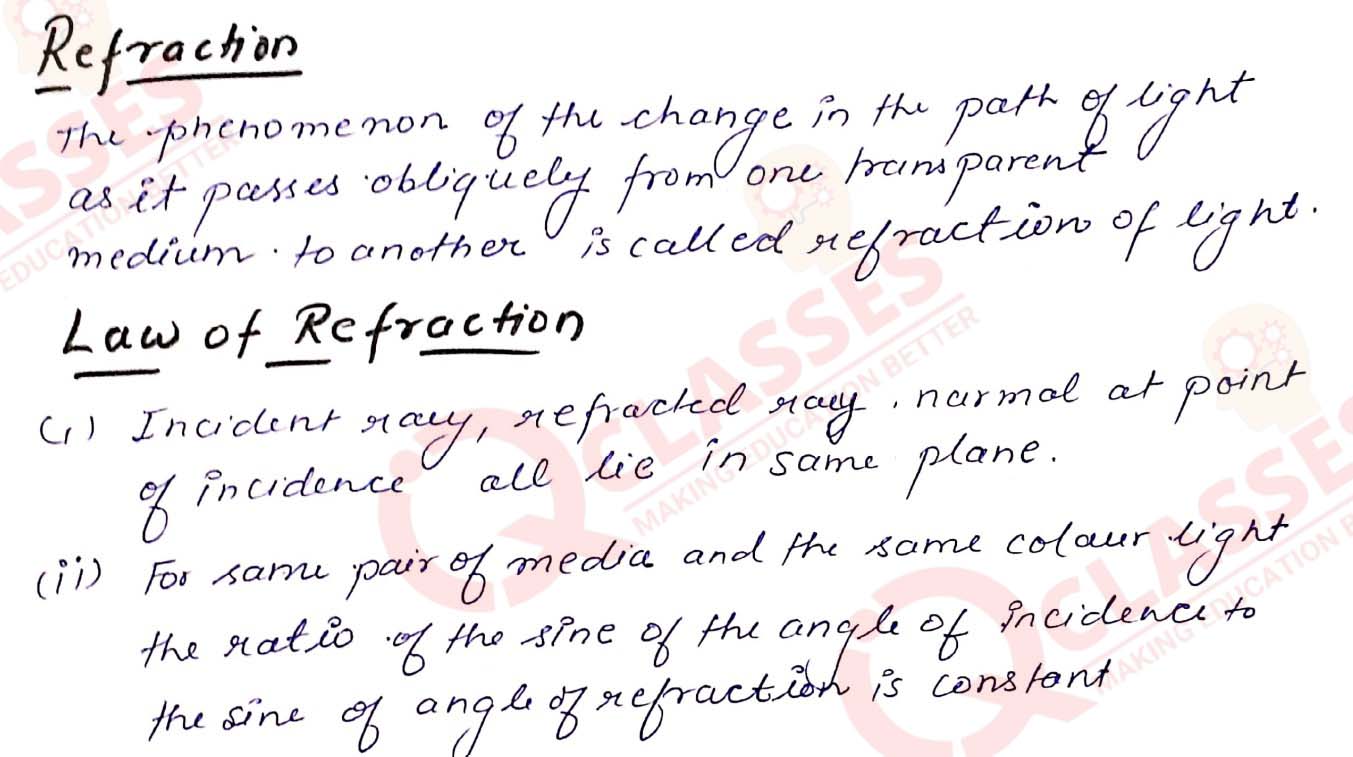 Refraction
The phenomenon of the change in the path of light
as it passes obliquely from one transparent
medium to another is called refraction of light.
Law of Refraction
(i) Incident ray, refracted ray, normal at point
of incidence all lie in same plane.
(ii) For same pair of media and the same colour light
the ratio of the sine of the angle of incidence to
the sine of angle of refraction is constant
CLASSES
MAKING EDUCATION BETTER